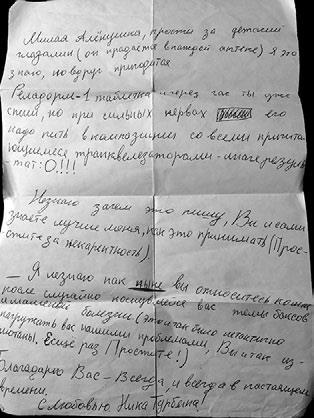 Милая Алёнушка, прости за детский
гладалин (он продаётся в каждой аптеке) я это
знаю, но вдруг пригодится
Реладорм-1 таблетка и через час ты уже
спий, но при сильных нервах его
надо пить в композиции со всеми причита-
ющимися транквелезаторами-иначе резуль-
тат: О!!!!
Незнаю зачем это пишу, Вы и сами
знаете лучше меня, как это принимать (Прос-
тите за некарентность)
— Я незнаю как ныне вы относитесь ко мне
после случайно коснувшейся вас темы боксов
и маминой болезни (это и так было нетактично
нагружать вас нашими проблемами, Вы и так из-
мотаны. Ещще раз Простите!)
Благодарю Вас-Всегда, и всегда в настоящем
времени.
С Любовью Ника Турбина